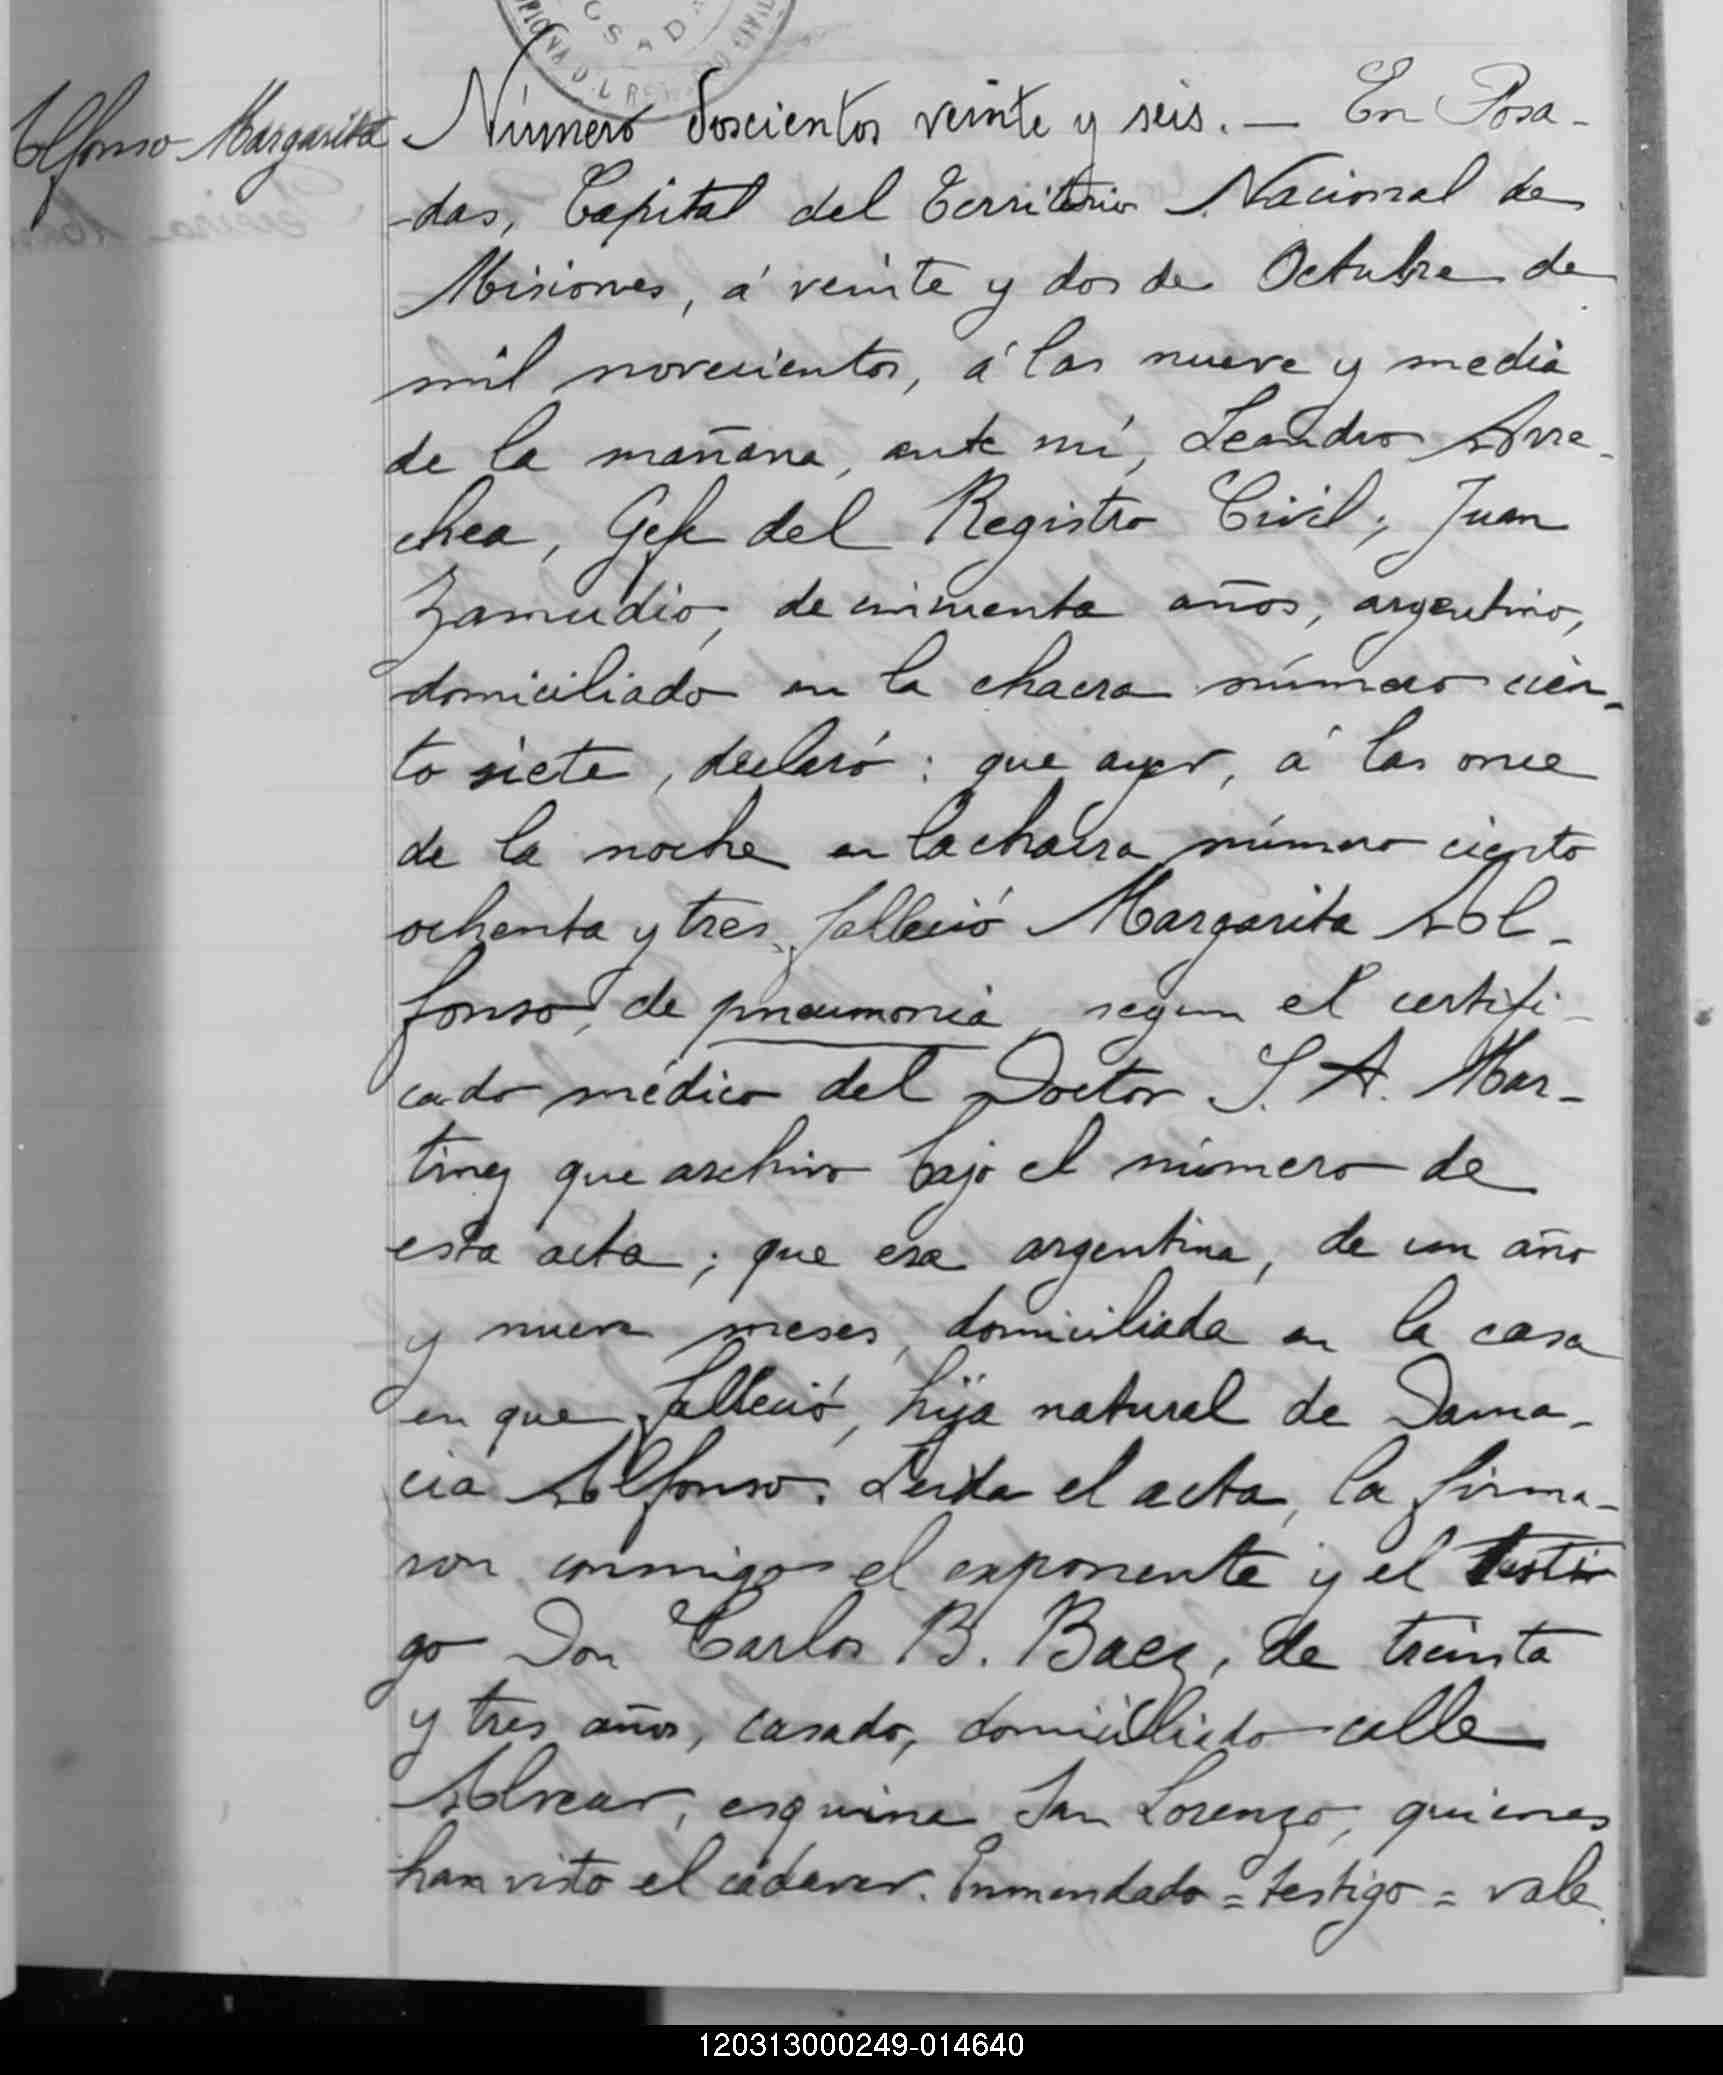 Alfonso Margarita
Número doscientos veinte y seis. — En Posa-
-das, Capital del Territorio Nacional de
Misiones, á veinte y dos de Octubre de
mil novecientos, á las nueve y media
de la mañana, ante mí, Leandro Arre-
chea, Gefe del Registro Civil; Juan
Zamudio, de cincuenta años, argentino,
domiciliado en la chacra número cien-
to siete, declaró: que ayer, á las once
de la noche en la chacra número ciento
ochenta y tres, falleció Margarita Al-
fonso, de pneumonia, segun el certifi-
cado médico del Doctor S. A. Mar-
tinez que archivo bajo el número de
esta acta; que era argentina, de un año
y nueve meses, domiciliada en la casa
en que falleció, hija natural de Dama-
cia Alfonso. Leida el acta, la firma-
ron conmigo el exponente y el testi
go Don Carlos B. Baez, de treinta
y tres años, casado, domiciliado calle
Alvear, esquina San Lorenzo, quienes
han visto el cádaver. Enmendado = testigo = vale.
120313000249-014640